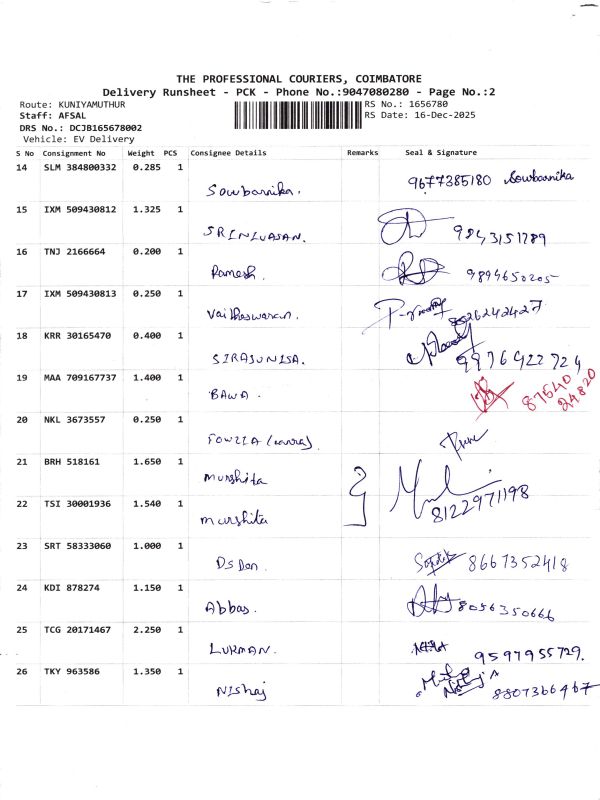 THE PROFESSIONAL COURIERS, COIMBATORE
Delivery Runsheet - PCK - Phone No.:9047080280 - Page No.:2
Route: KUNIYAMUTHUR RS No.: 1656780
Staff: AFSAL RS Date: 16-Dec-2025
DRS No.: DCJB165678002
Vehicle: EV Delivery
S No Consignment No Weight PCS Consignee Details Remarks Seal & Signature
14 SLM 384800332 0.285 1 Sowbarnika. 9677385180 Sowbarnika
15 IXM 509430812 1.325 1 SRINIVASAN. 9843151789
16 TNJ 2166664 0.200 1 Ramesh. 9894650205
17 IXM 509430813 0.250 1 Vaitheswaran.
18 KRR 30165470 0.400 1 SIRAJUNISA. 9976922724
19 MAA 709167737 1.400 1 BAWA. 87540 24820
20 NKL 3673557 0.250 1
21 BRH 518161 1.650 1 Murshita
22 TSI 30001936 1.540 1 Murshita 8122971198
23 SRT 58333060 1.000 1 8667352418
24 KDI 878274 1.150 1 Abbas. 8056350666
25 TCG 20171467 2.250 1 LUKMAN. 9597955729.
26 TKY 963586 1.350 1 Nishaj 8807366467